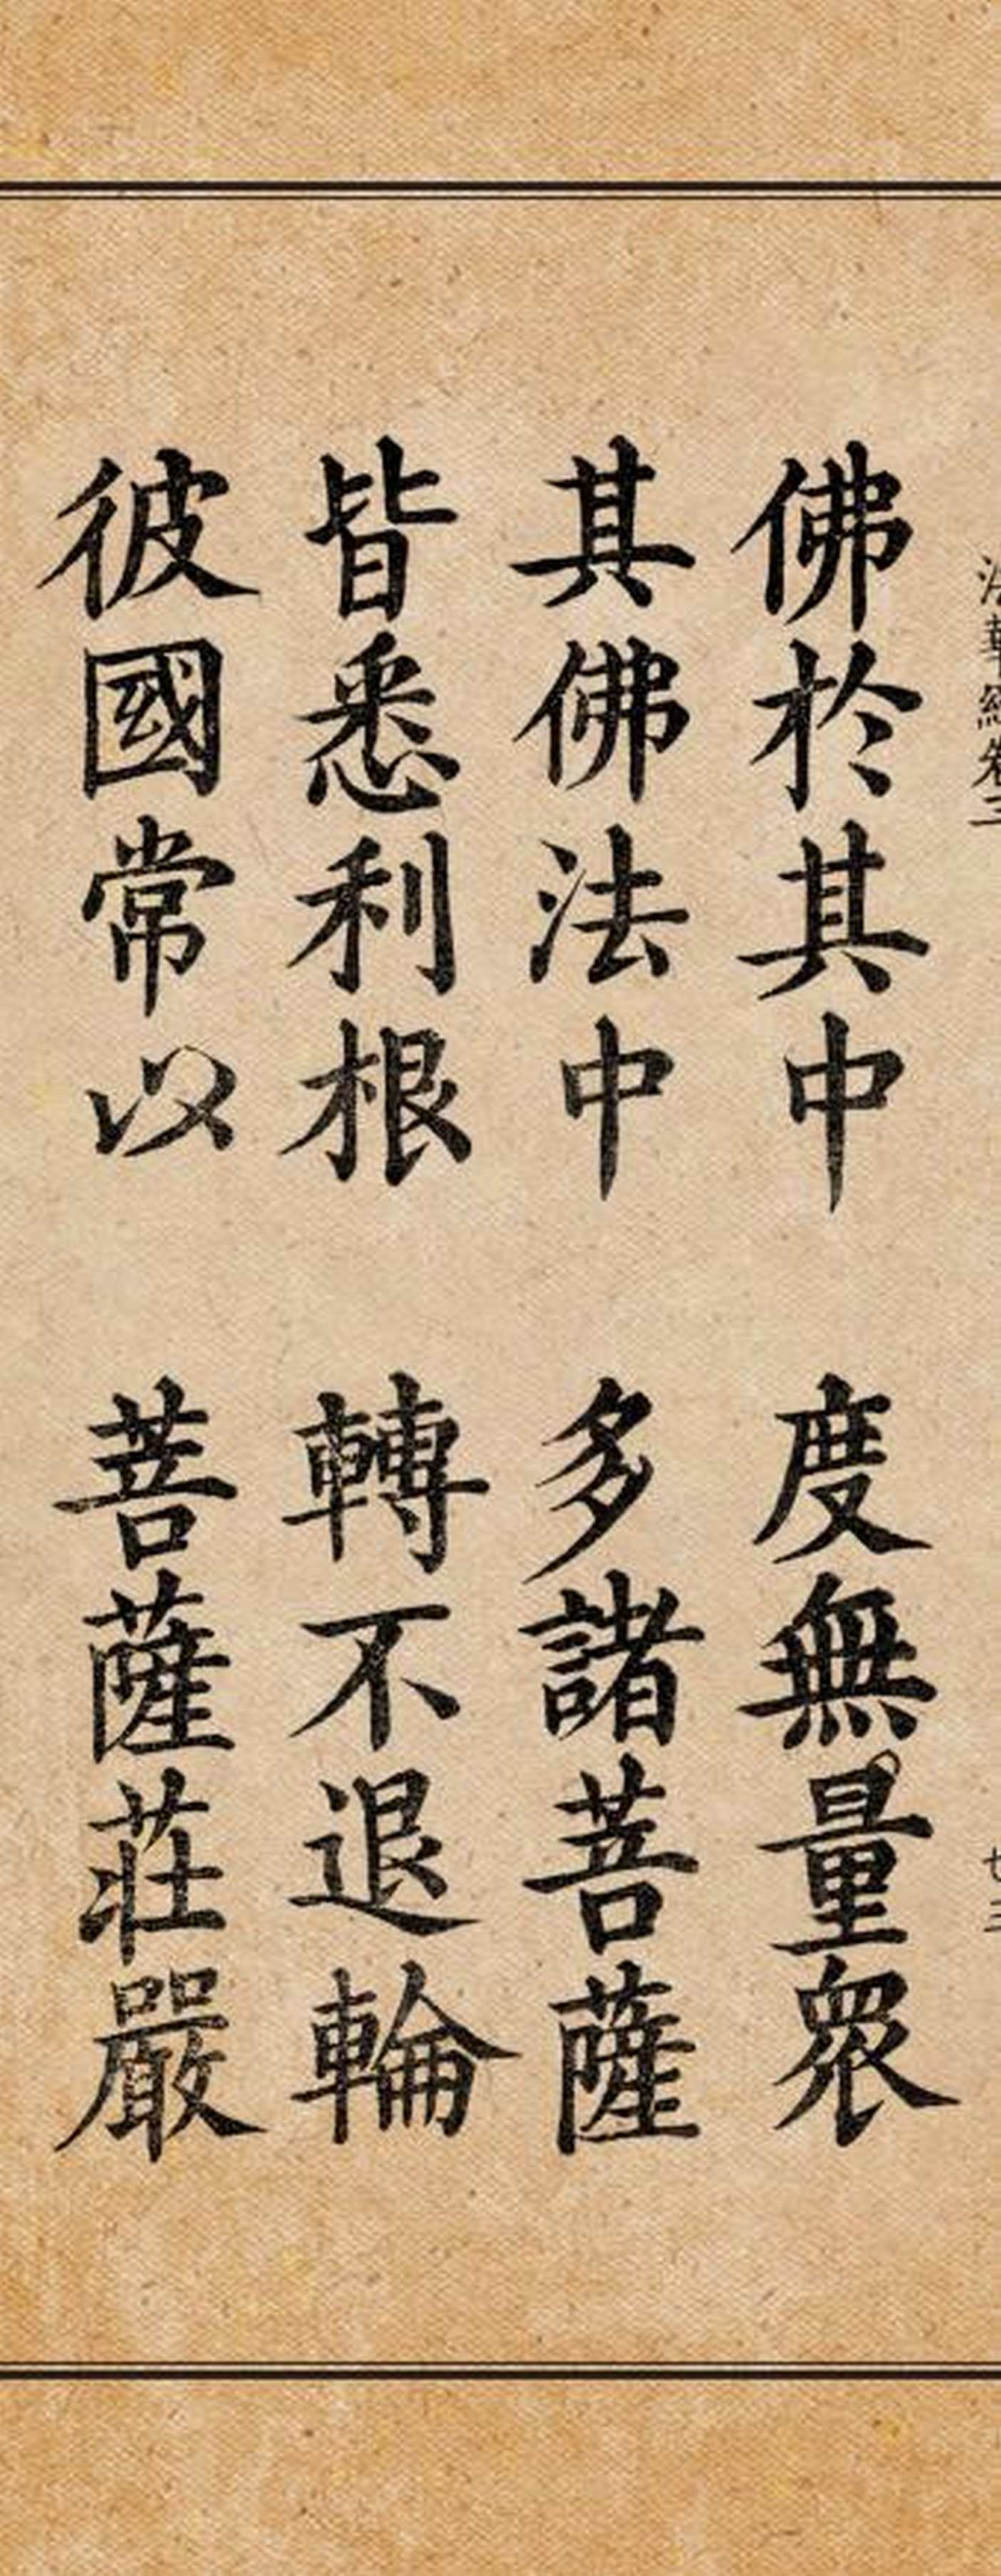 法華經卷三
廿三
佛於其中 度無量眾
其佛法中 多諸菩薩
皆悉利根 轉不退輪
彼國常以 菩薩莊嚴